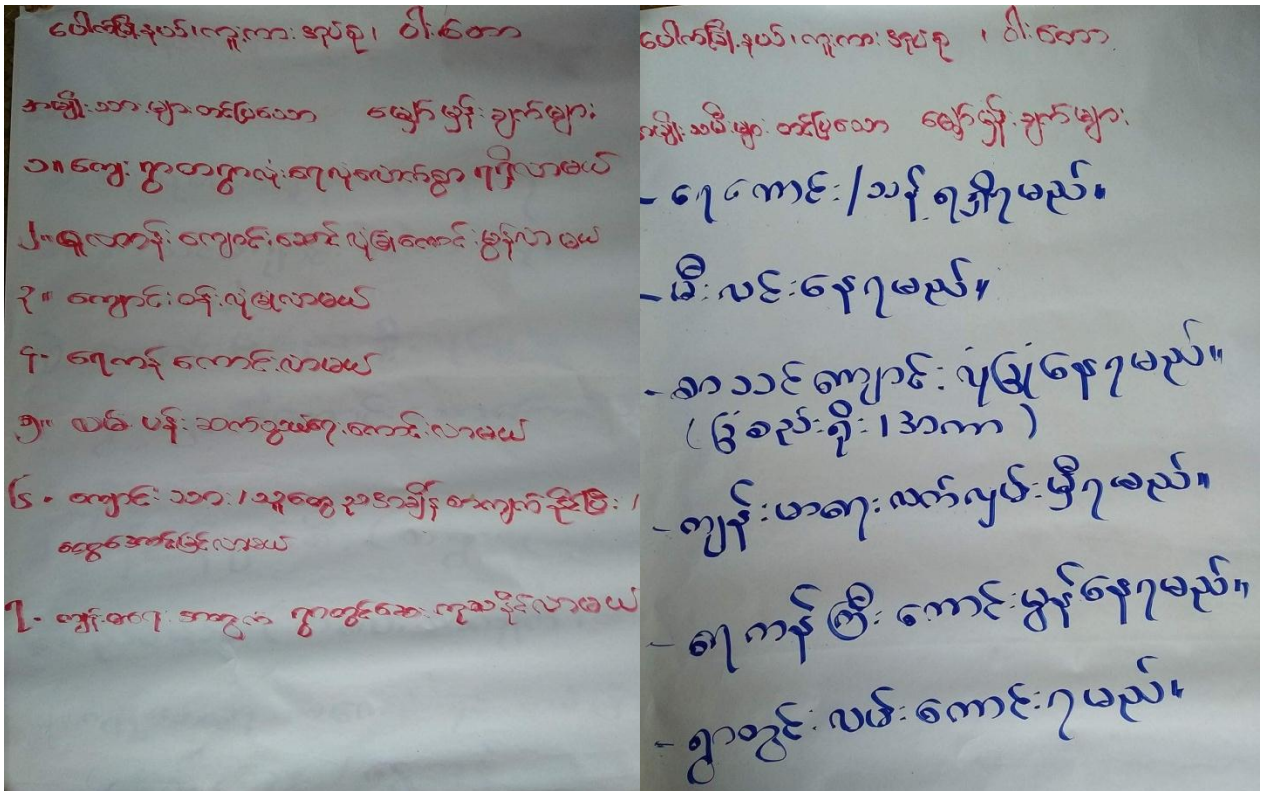 ပေါက်မြို့နယ်၊ကူးကားအုပ်စု၊ ဝါးတော
အမျိုးသားများတင်ပြသော မျှော်မှန်းချက်များ
၁။ ကျေးရွာတရွာလုံးရေလုံလောက်စွာ ရရှိလာမယ်
၂။ မူလတန်းကျောင်းဆောင်လုံခြုံကောင်းမွန်လာမယ်
၃။ ကျောင်းဝန်းလုံခြုံလာမယ်
၄- ရေကန်ကောင်းလာမယ်
၅။ လမ်းပန်းဆက်သွယ်ရေးကောင်းလာမယ်
၆- ကျောင်းသား/သူတွေ ဥာဏ်
အောင်မြင်လာမယ်
၇- ကျန်းမာရေးအတွက် ရွာတွင်ဆေးကုသနိုင်လာမယ်
ပေါက်မြို့နယ်၊ကူးကားအုပ်စု ၊ ဝါးတော
အမျိုးသမီးများတင်ပြသော မျှော်မှန်းချက်များ
- ရေကောင်း/သန့်ရရှိရမည်။
- မီးလင်းနေရမည်။
- စာသင်ကျောင်း လုံခြုံနေရမည်။
(ခြံစည်းရိုး/အကာ)
- ကျန်းမာရေးလက်လှမ်းမှီရမည်။
- ရေကန်ကြီးကောင်းမွန်နေရမည်။
- ရွာတွင်းလမ်းကောင်းရမည်။